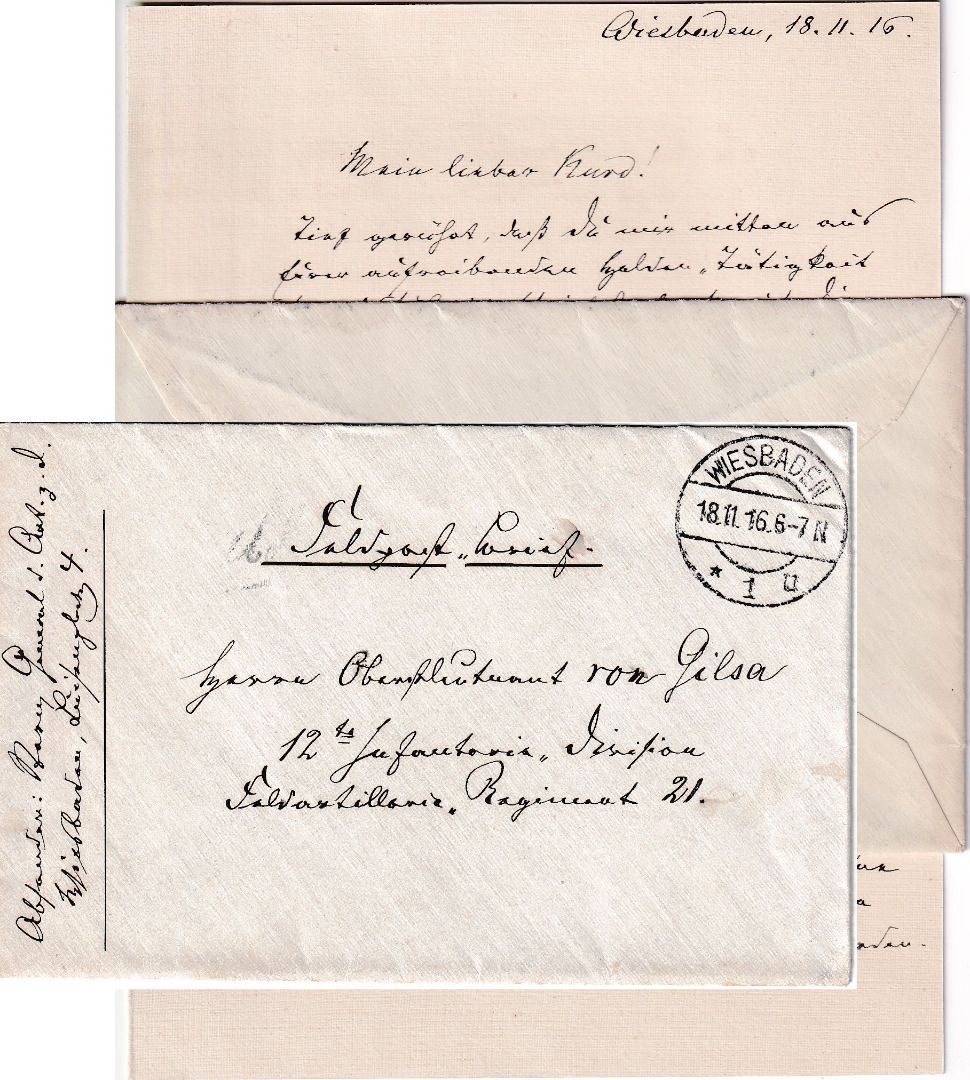 Wiesbaden, 18.11.16.
Mein lieber Kurd!
Tief gerührt, daß Du mir mitten aus
Eurer aufreibenden Helden-Tätigkeit
WIESBADEN
18.11.16.6-7N
* 1 u
Feldpost-Brief.
Herrn Oberstleutnant von Gilsa
12te Infanterie-Division
Feldartillerie-Regiment 21.
Absender: General d. Art. z. D.
Wiesbaden, Luisenplatz 4.